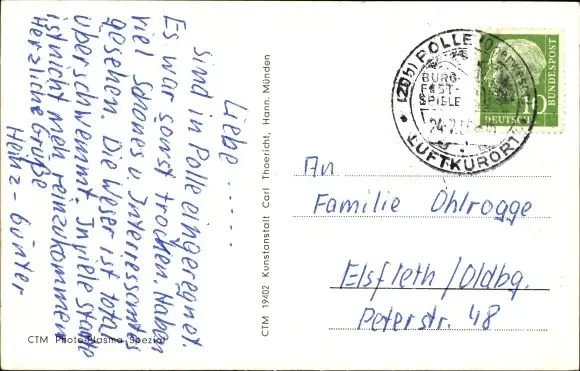 Liebe .......
sind in Polle eingeregnet.
Es war sonst trocken. Haben
viel Schönes u. Interressantes
gesehen. Die Weser ist total
überschwemmt. In viele Städte
ist nicht mehr reinzukommen
Herzliche Grüße
Heinz-Günter
CTM Photo-Plasma Spezial
CTM 19402 Kunstanstalt Carl Thoericht, Hann. Münden
(20b) POLLE
BURG-
FEST-
SPIELE
LUFTKURORT
10
DEUTSCHE
BUNDESPOST
An
Familie Öhlrogge
Elsfleth/Oldbg.
Peterstr. 48